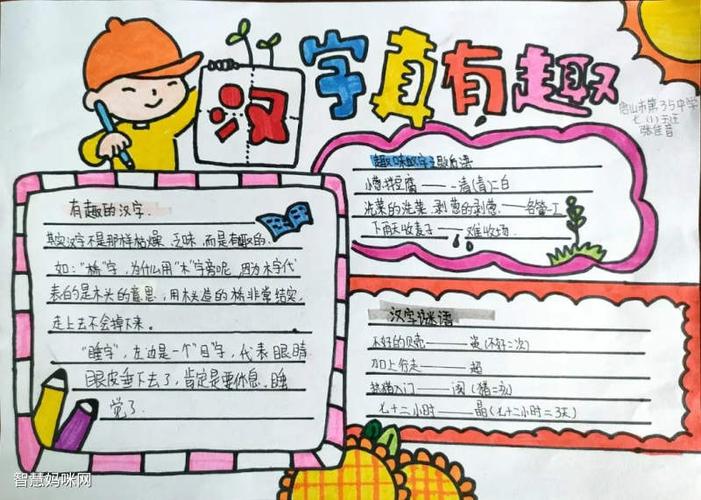 汉字真有趣
唐山市第35中学
七(1)
张佳音
有趣的汉字.
其实汉字不是那样枯燥、乏味,而是有趣的.
如:"桥"字,为什么用"木"字旁呢,因为木字代
表的是木头的意思,用木头造的桥非常结实,
走上去不会掉下来。
"睡字",左边是一个"目"字,代表眼睛
眼皮垂下去了,肯定是要休息、睡
觉了.
趣味汉字之歇后语
小葱拌豆腐——一清(青)二白
洗菜的洗菜,剥葱的剥葱.——各管一工
下雨天收麦子——难收场.
汉字谜语
不好的贝壳——资(不好=次)
加上行走——超
热猪入门——阂(猪=亥)
七十二小时——晶(七十二小时=3天)
智慧妈咪网